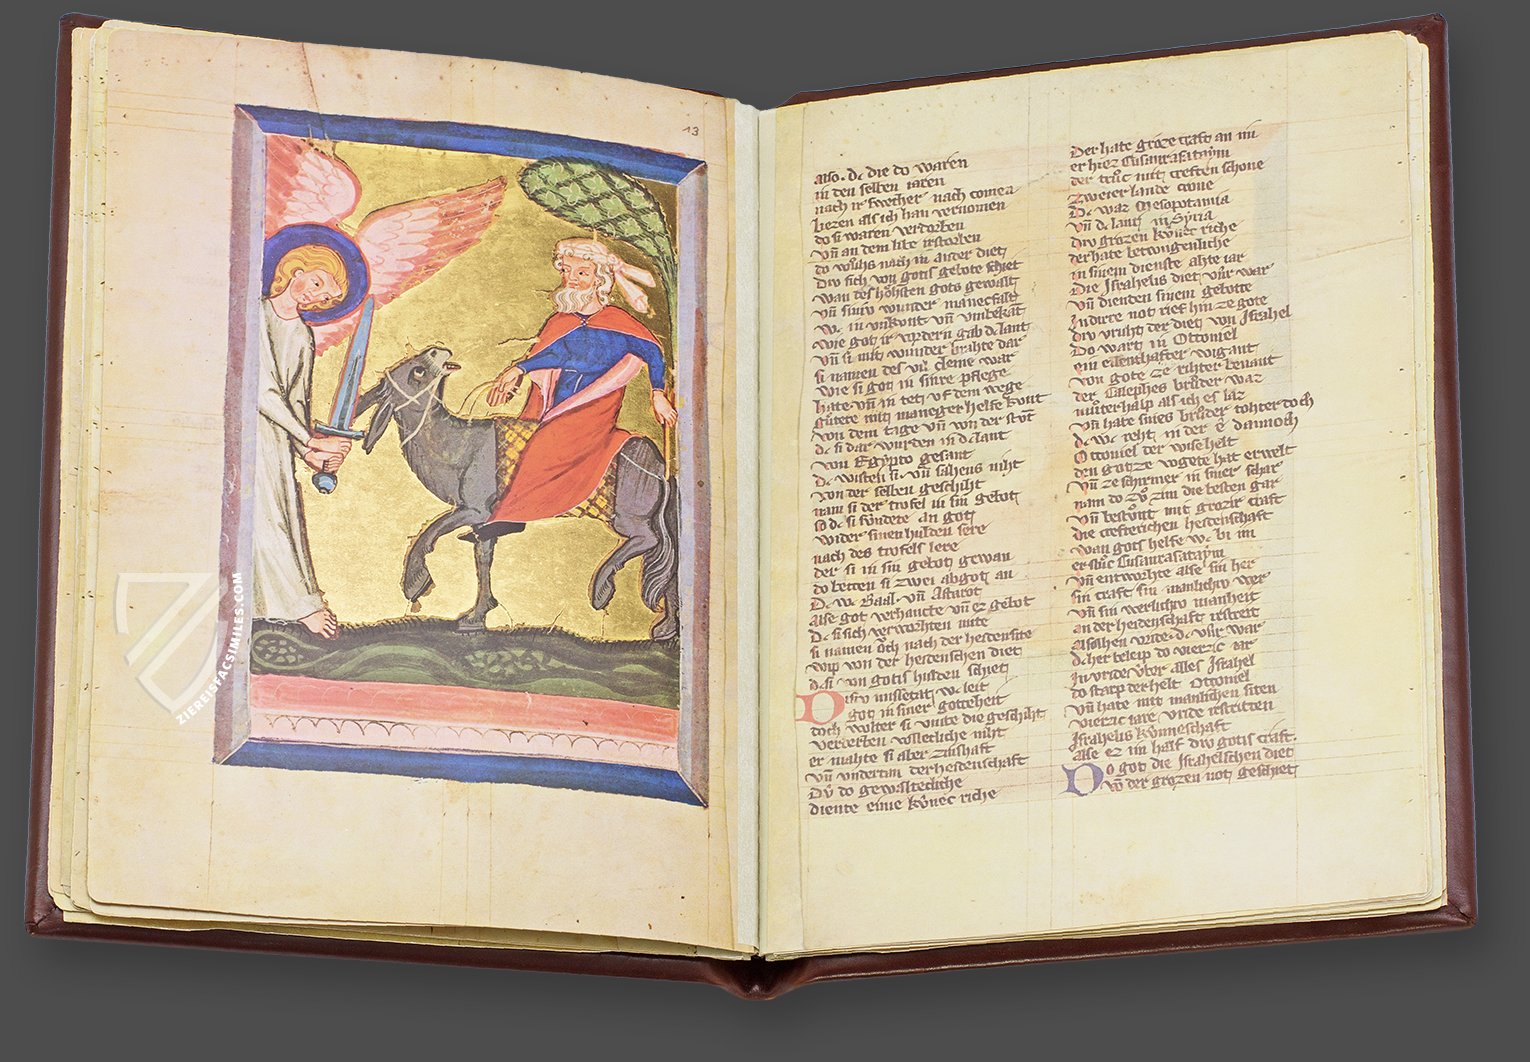 13
ZIEREISFACSIMILES.COM
also. dc die do waren
in den selben iaren
nach ir fweher nach comea
liezen als ich han vernomen
do si waren verdorben
vñ an dem libe irstorben
do wůhs nach in ander diet
Drv sich von gotis gebote schiet
wan des hôhsten gots gewalt
vñ sinrv wunder manecfalt
in vnkunt vñ vnbekāt
wie got ir vordern gab dc lant
vñ si mit wunder brahte dar
si namen des vil cleine war
wie si got in sinre pflege
hate vñ in tet vf dem wege
gůtere mit maneger helfe kvnt
von dem tage vñ von der stōt
dc si dar wurden in dc lant
von Egypto gesant
Dc wisten si. vñ sahens niht
von der selben geschiht
nam si der tiofel in sin gebot
so dc si svndere an got
wider sinen hulden sere
nach des tiofels lere
der si in sin gebot gewan
do betten si zwei abgot an
Dc w. Baal. vñ Astarot
Alse got verhancte vñ ez gebot
Dc si sich verworhten mite
si namen ôch nach der heidensite
wip von der heidenschen diet
dc si von gotis hulden schiet
Disrv missetat w. leit
got in siner gotteheit
doch wolter si vmbe die geschiht
verderben volleclîche niht
er mahte si aber zinshaft
vñ vndertan der heidenschaft
Dv do gewaltecliche
diente eime kv̂nec riche
Der hate groze craft an im
er hiez Cusanrasataym
der trůc mit creften schone
Zweier lande crone
Dc war Mesopotamia
vñ dc lant in Syria
drv grozen kv̂nec riche
der hate betwngenliche
in sinem dienste ahte iar
Die Israhelis diet vůr war
vñ dienden sinem gebotte
In dirre not rief hin ze gote
drv vruht der diet von Israhel
Do wart in Ottoniel
ein ellenthafter wigant
von gote ze rihter benant
der Calephes brůder was
můterhalp als ich es las
vñ hate sines brůder tohter doch
dc w. reht in der ê dannoch
Ottoniel der wise helt
den gotize vogete hat erwelt
vñ ze schirmer in siner schar
nam do zů zim die besten gar
vñ bestůnt mit grozir craft
die crefterichen heidenschaft
wan gots helfe w. bi im
er slůc Cusanrasataym
vñ entworhte alse sin her
sin craft sin manlichrv wer
vñ sin werlichrv manheit
an der heidenschaft irstreit
dc her beleip do vierzic iar
In vride v̂ber alles Israhel
do starp der helt Ottoniel
vñ hate mit manlichen siten
vierzic iare vride irstritten
Israhelis kv̂nneschaft
Alse ez im half drv gotis craft.
Do got die Israhelschen diet
vō der grozen not geschiet